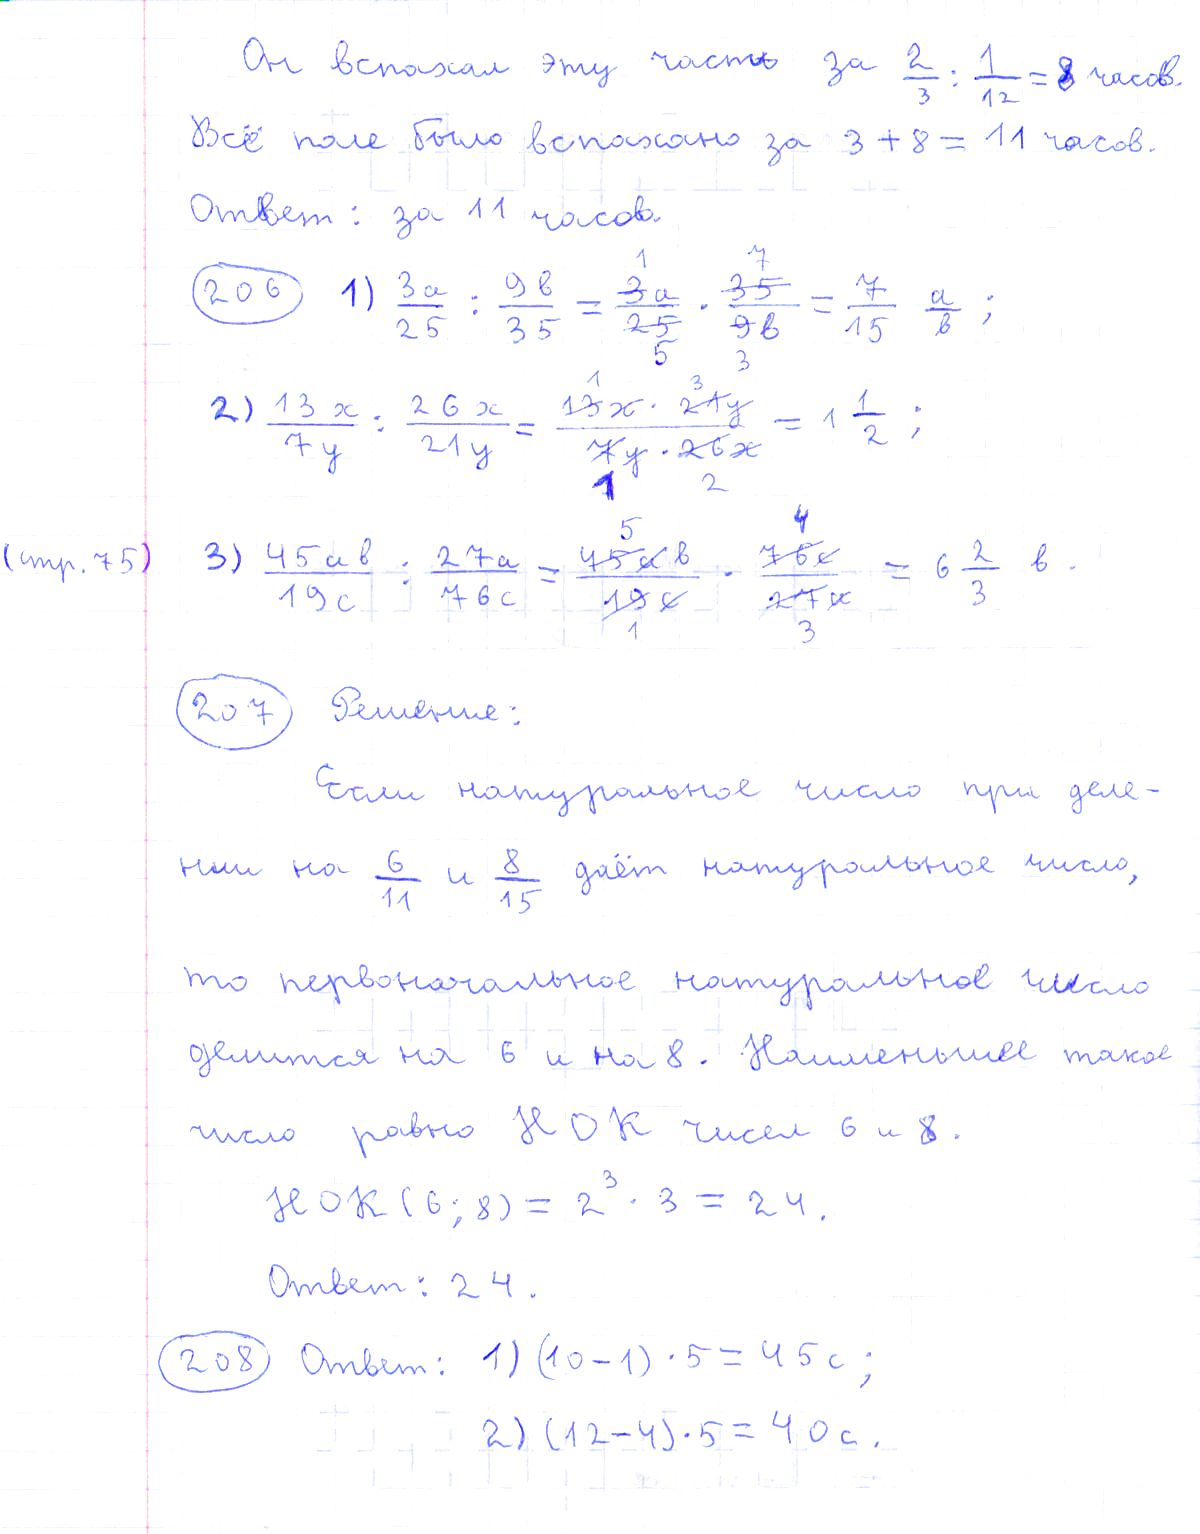 Он вспахал эту часть за 2/3 : 1/12 = 8 часов.
Всё поле было вспахано за 3 + 8 = 11 часов.
Ответ: за 11 часов.
206 1) 3a/25 : 9b/35 = 3a/25 · 35/9b = 7/15 a/b ;
1 7
5 3
2) 13x/7y : 26x/21y = 13x · 21y / 7y · 26x = 1 1/2 ;
1 3
1 2
(стр. 75) 3) 45ab/19c : 27a/76c = 45ab/19c · 76c/27a = 6 2/3 b.
5 4
1 3
207 Решение:
Если натуральное число при деле-
нии на 6/11 и 8/15 даёт натуральное число,
то первоначальное натуральное число
делится на 6 и на 8. Наименьшее такое
число равно НОК чисел 6 и 8.
НОК (6; 8) = 2³ · 3 = 24.
Ответ: 24.
208 Ответ: 1) (10 – 1) · 5 = 45 с;
2) (12 – 4) · 5 = 40 с.